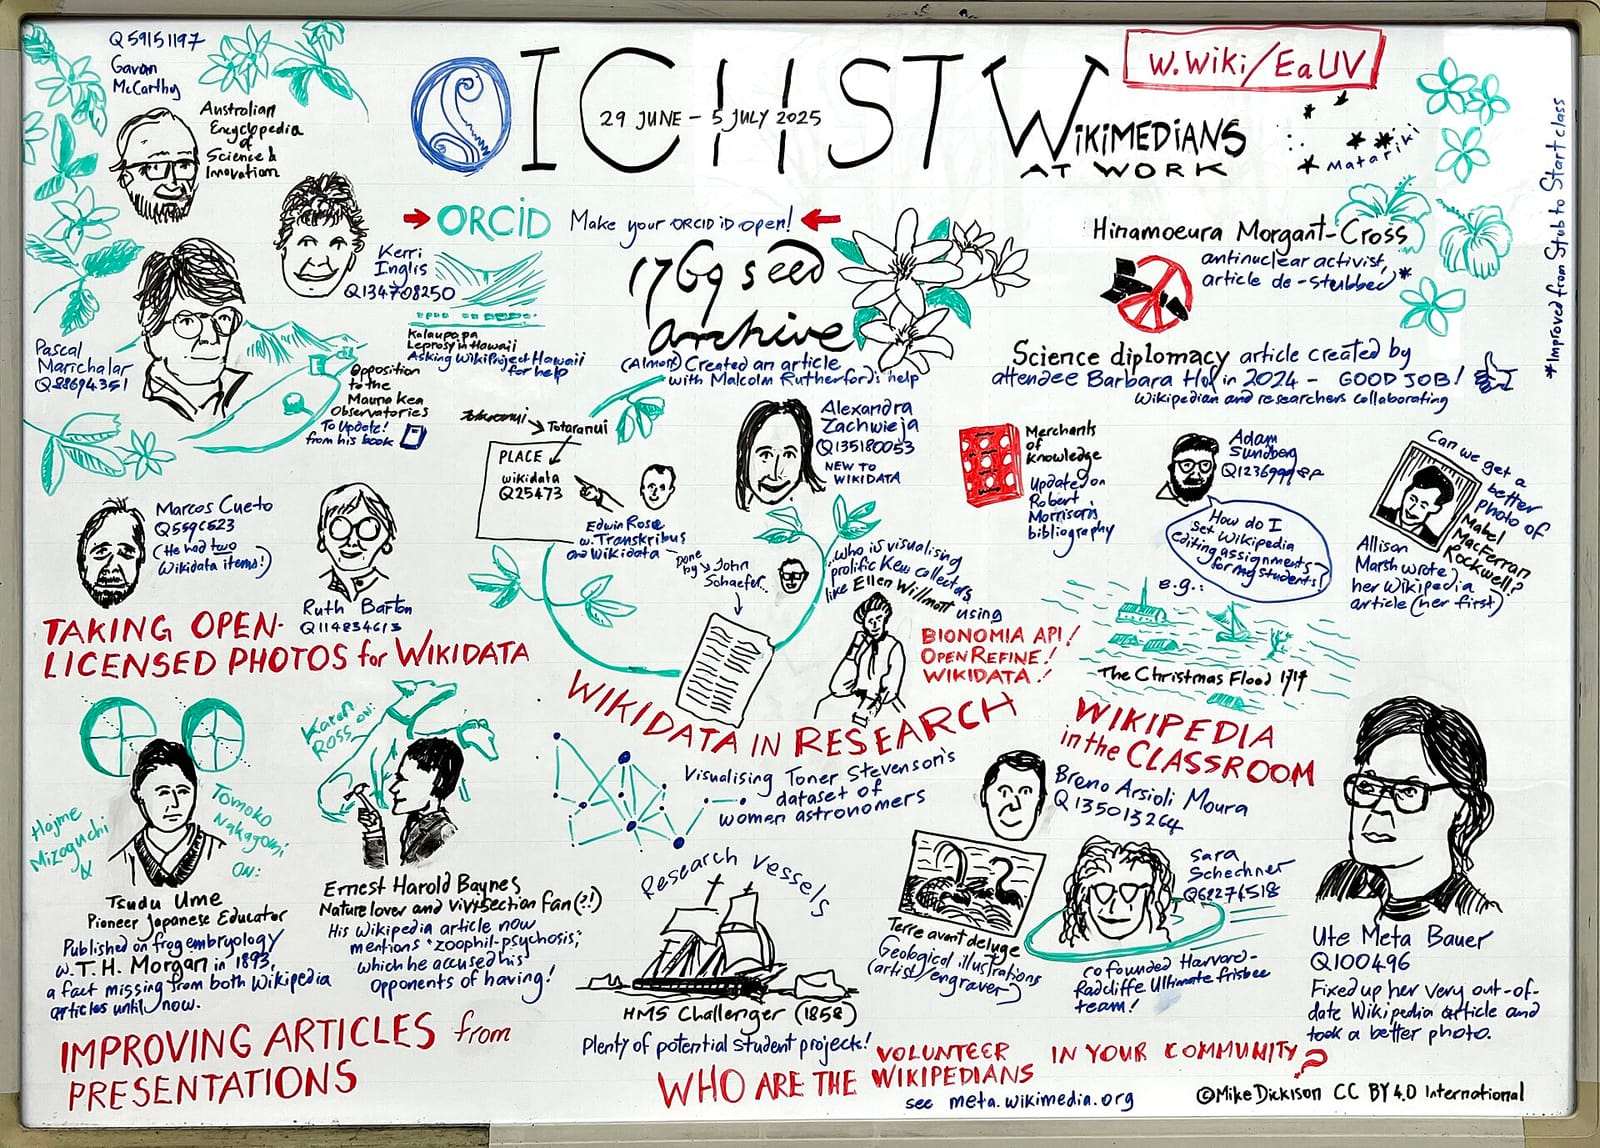 Q59151197
Gavan
McCarthy
Australian
Encyclopedia
of
Science &
Innovation
ICHSTW
29 JUNE – 5 JULY 2025
WIKIMEDIANS
AT WORK
W.Wiki/EaUV
Matariki
*Improved from Stub to Start class
Kerri
Inglis
Q134708250
Kalaupapa
Leprosy in Hawaii
Asking WikiProject Hawaii
for help
→ ORCID Make your ORCID iD open! ←
1769 seed
archive
(Almost) Created an article
with Malcolm Rutherford's help
Hinamoeura Morgant-Cross
antinuclear activist,
article de-stubbed*
Science diplomacy article created by
attendee Barbara Hof in 2024 – GOOD JOB!
Wikipedian and researchers collaborating
Pascal
Marichalar
Q88694351
Opposition
to the
Mauna Kea
Observatories
To Update!
from his book
→ Totaranui
PLACE
wikidata
Q25473
Edwin Rose
w. Transkribus
and Wikidata
Done
by
John
Schaefer...
Alexandra
Zachwieja
Q135180053
NEW TO
WIKIDATA
...who is visualising
prolific Kew collectors
like Ellen Willmott using
BIONOMIA API!
OPENREFINE!
WIKIDATA!
Merchants
of
Knowledge
Updated on
Robert
Morrison's
bibliography
Adam
Sundberg
How do I
set Wikipedia
editing assignments
for my students?
e.g.:
The Christmas Flood 1717
Can we get a
better
photo of
Mabel
MacFerran
Rockwell?
Allison
Marsh wrote
her Wikipedia
article (her first)
Marcos Cueto
Q5596523
(He had two
Wikidata items!)
Ruth Barton
Q114834613
TAKING OPEN-
LICENSED PHOTOS for WIKIDATA
WIKIDATA IN RESEARCH
WIKIPEDIA
in the CLASSROOM
Hajime
Mizoguchi
&
Tomoko
Nakagomi
ON:
Tsudu Ume
Pioneer Japanese Educator
Published on frog embryology
w. T. H. Morgan in 1893,
a fact missing from both Wikipedia
articles until now.
Karen
Ross on:
Ernest Harold Baynes
Nature lover and vivisection fan (?!)
His Wikipedia article now
mentions "zoophil-psychosis",
which he accused his
opponents of having!
IMPROVING ARTICLES from
PRESENTATIONS
Visualising Toner Stevenson's
dataset of
women astronomers
Research vessels
HMS Challenger (1858)
Plenty of potential student projects!
Breno Arsioli Moura
Q135013264
Terre avant deluge
Geological illustrations
(artist/engraver)
Sara
Schechner
Q62276518
cofounded Harvard-
Radcliffe Ultimate frisbee
team!
Ute Meta Bauer
Q100496
Fixed up her very out-of-
date Wikipedia article and
took a better photo.
WHO ARE THE VOLUNTEER
WIKIPEDIANS IN YOUR COMMUNITY?
see meta.wikimedia.org
©Mike Dickison CC BY 4.0 International